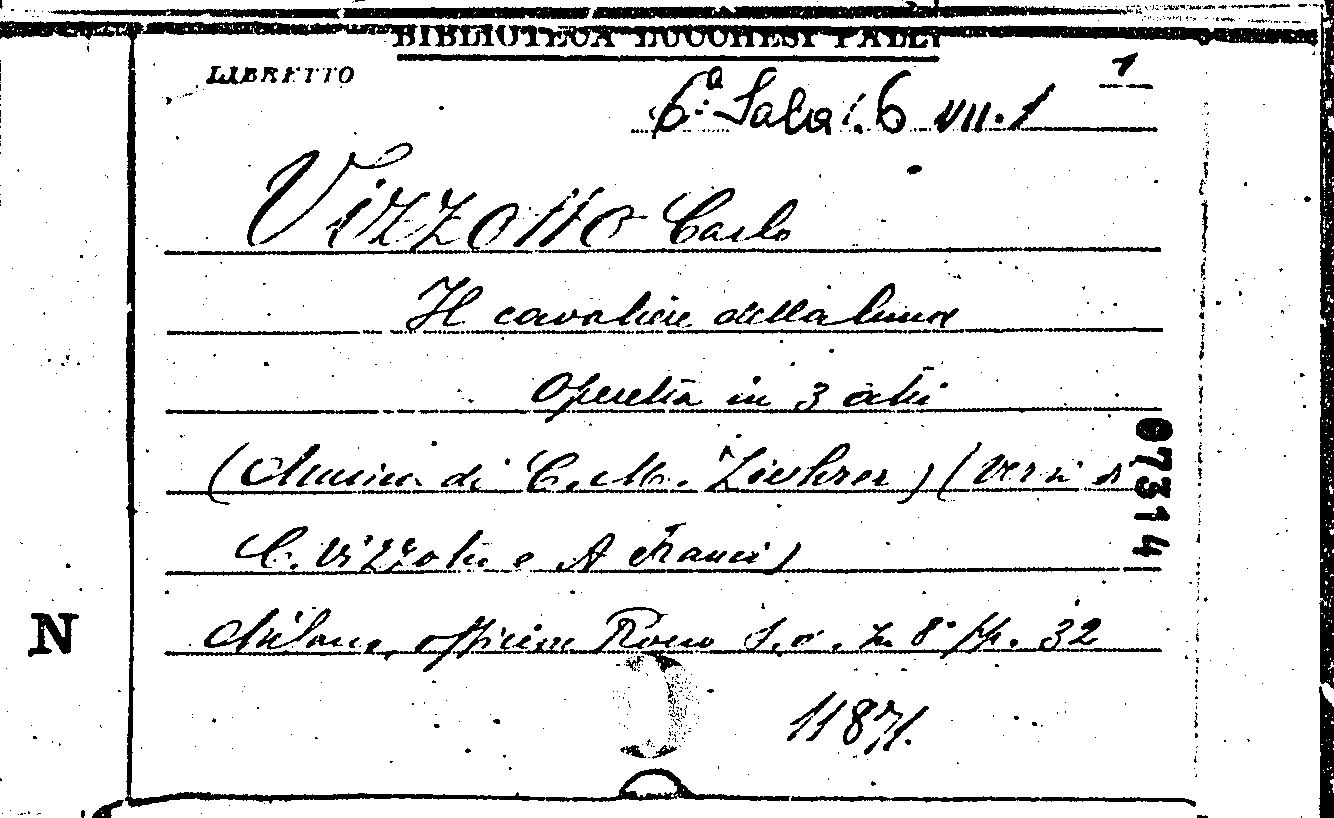 BIBLIOTECA LUCCHESI PALLI
LIBRETTO
1
6ª Sala 1.6 VII.1
Vizzotto Carlo
Il cavaliere della luna
Operetta in 3 atti
(Musica di C. M. Ziehrer) (Versi di
C. Vizzotto e A Franci)
Milano, officine s.d. In 8° pp. 32
11871.
07314
N